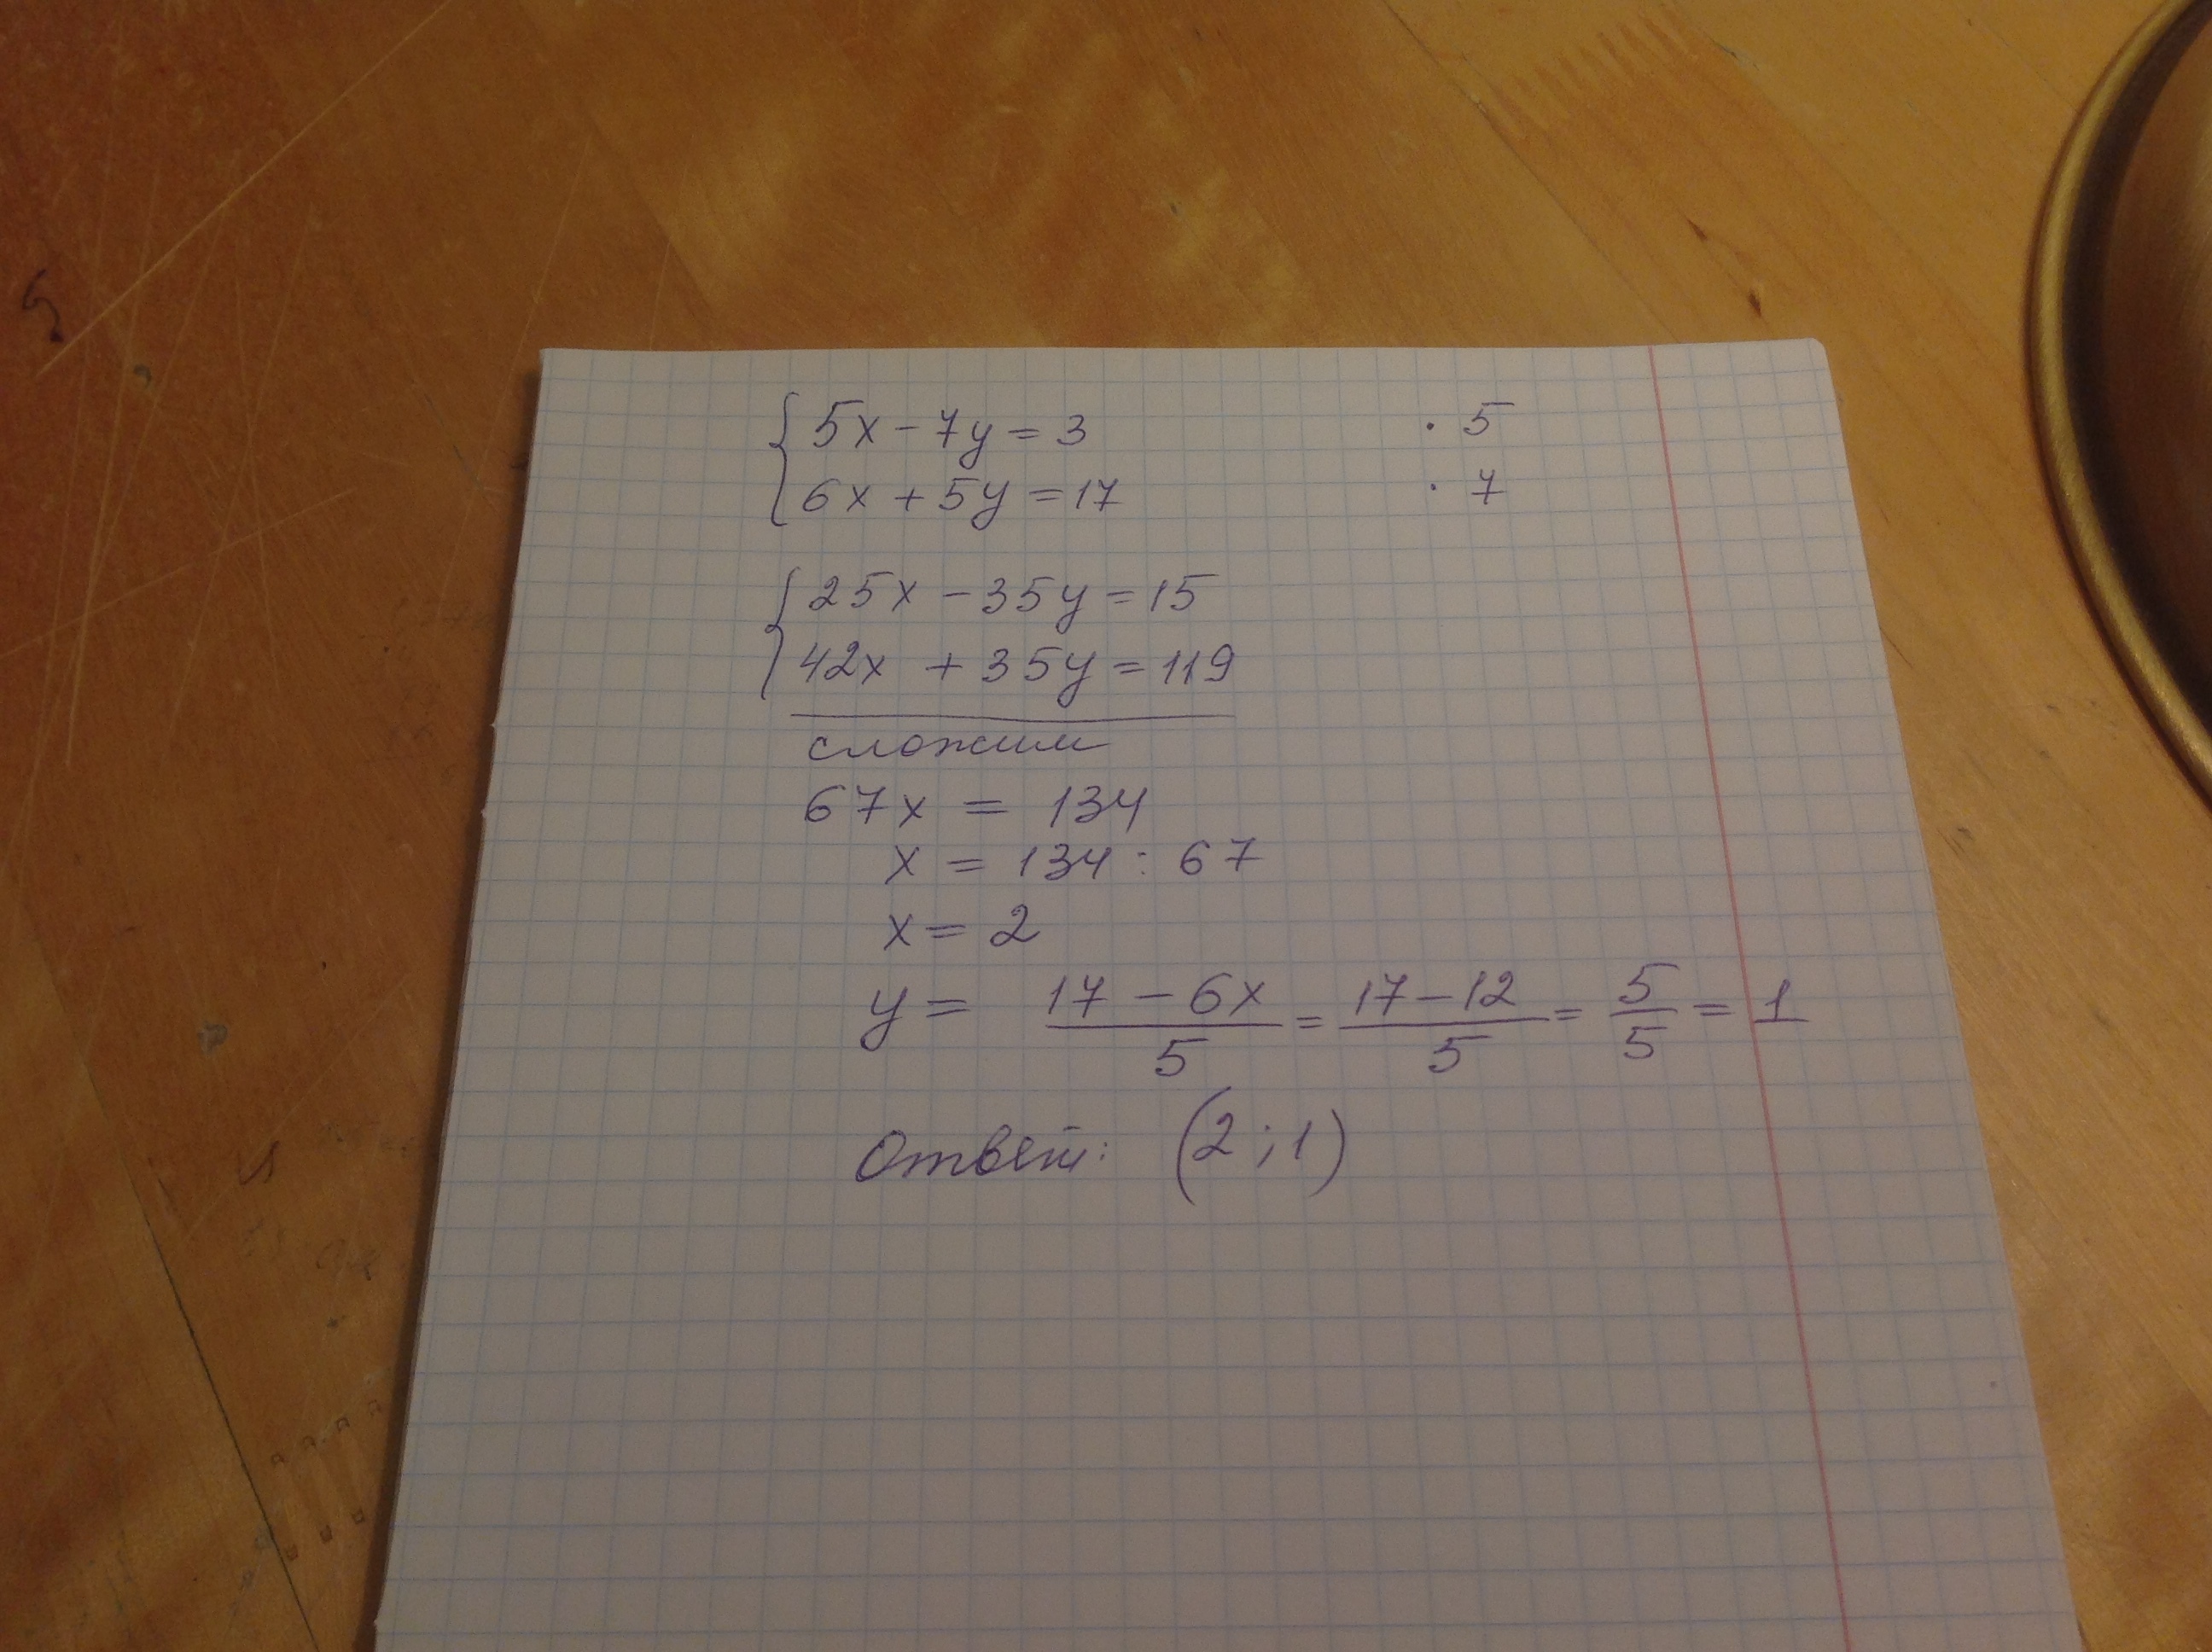 5x - 7y = 3 · 5
6x + 5y = 17 · 7
25x - 35y = 15
42x + 35y = 119
сложим
67x = 134
x = 134 : 67
x = 2
y = (17 - 6x)/5 = (17 - 12)/5 = 5/5 = 1
Ответ: (2 ; 1)